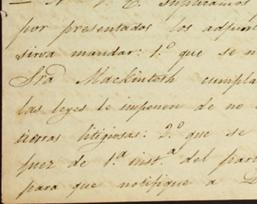 á V. E. suplicamos
por presentados los adjun
sirva mandar: 1.º que se n
Sra Mackintosh cumpla
las leyes le imponen de no
tierras litigiosas: 2.º que se
juez de 1.ª inst.ª del par
para que notifique a D